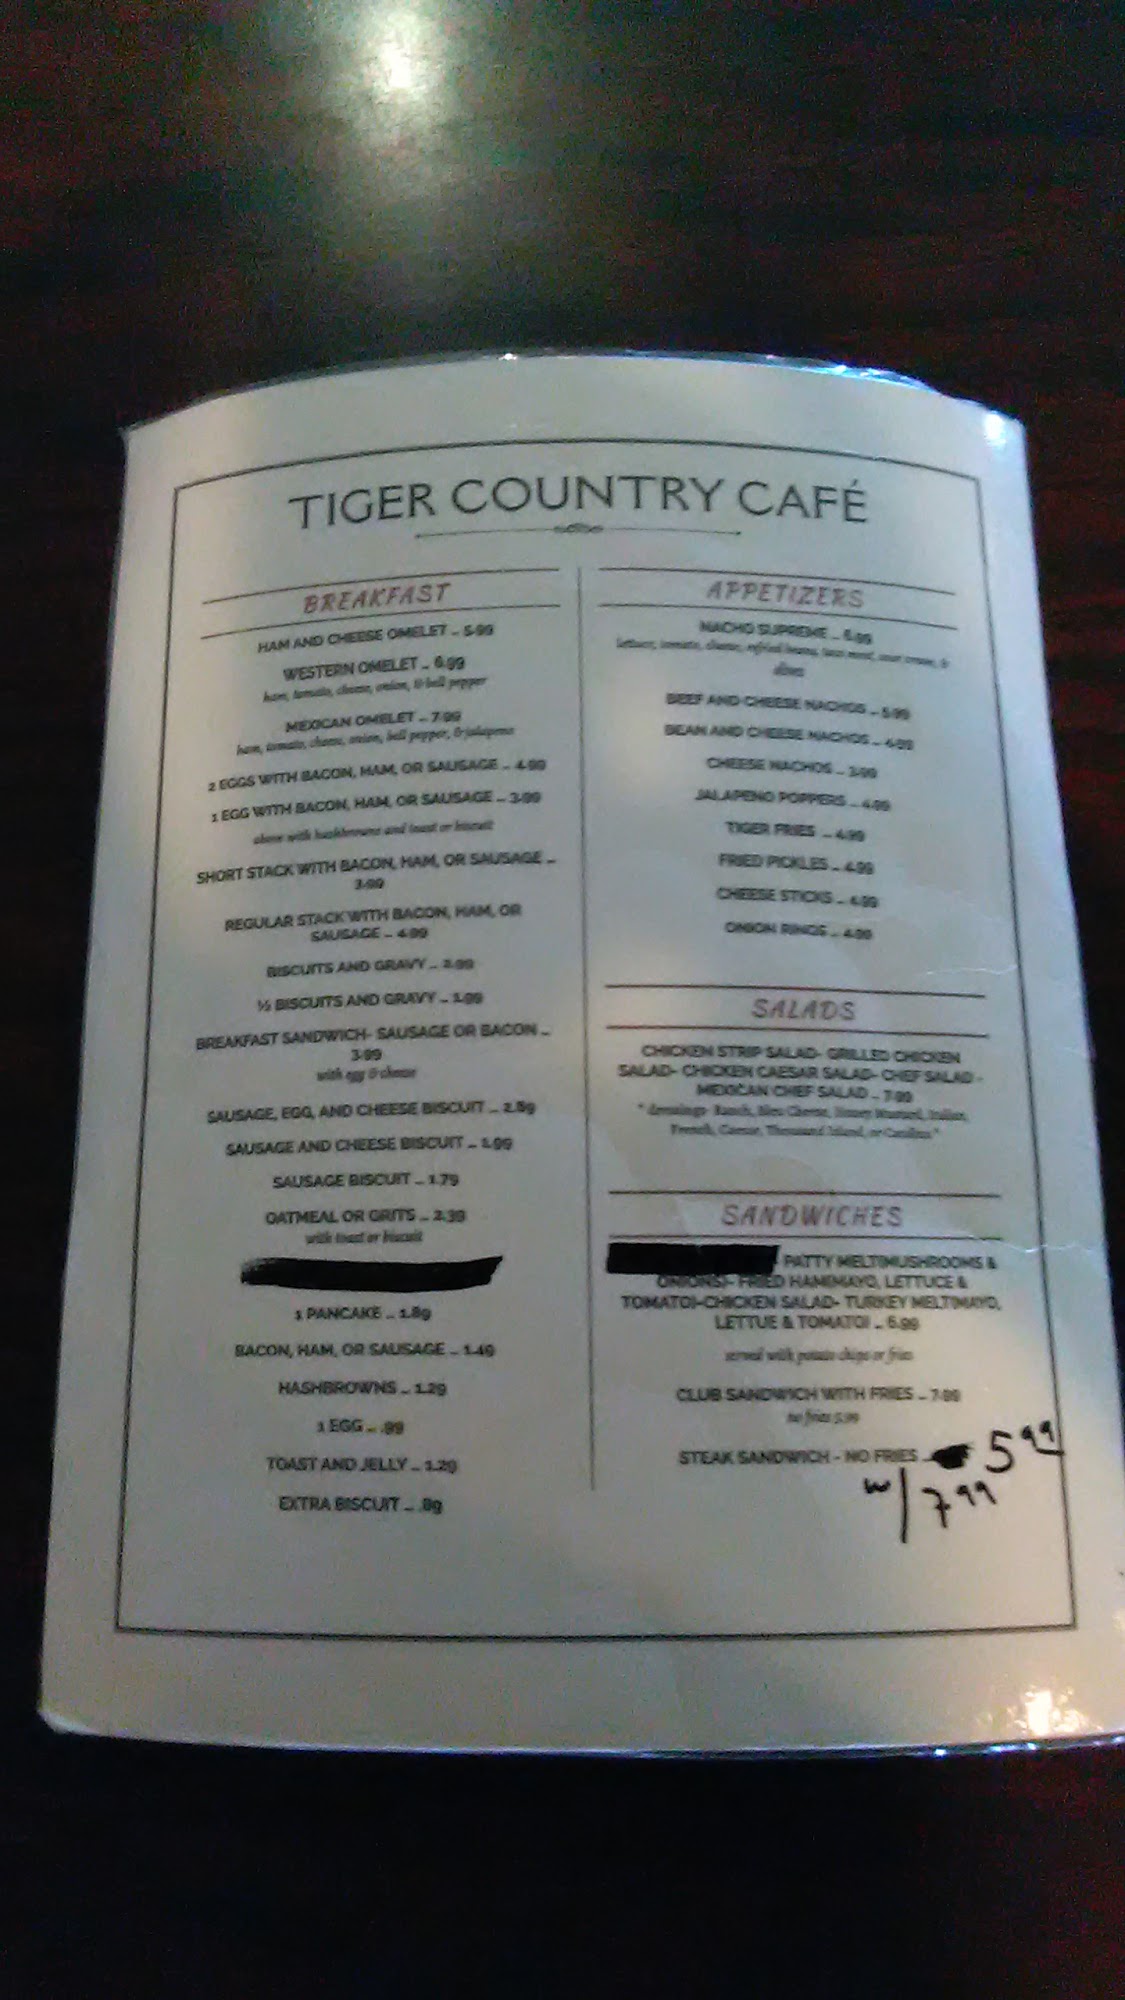 TIGER COUNTRY CAFÉ
BREAKFAST
HAM AND CHEESE OMELET .. 5.99
WESTERN OMELET .. 6.99
ham, tomato, cheese, onion, & bell pepper
MEXICAN OMELET .. 7.99
ham, tomato, cheese, onion, bell pepper, & jalapeno
2 EGGS WITH BACON, HAM, OR SAUSAGE .. 4.99
1 EGG WITH BACON, HAM, OR SAUSAGE .. 3.99
above with hashbrowns and toast or biscuit
SHORT STACK WITH BACON, HAM, OR SAUSAGE ..
3.99
REGULAR STACK WITH BACON, HAM, OR
SAUSAGE .. 4.99
BISCUITS AND GRAVY .. 2.99
½ BISCUITS AND GRAVY .. 1.99
BREAKFAST SANDWICH- SAUSAGE OR BACON ..
3.99
with egg & cheese
SAUSAGE, EGG, AND CHEESE BISCUIT .. 2.89
SAUSAGE AND CHEESE BISCUIT .. 1.99
SAUSAGE BISCUIT .. 1.79
OATMEAL OR GRITS .. 2.39
with toast or biscuit
1 PANCAKE .. 1.89
BACON, HAM, OR SAUSAGE .. 1.49
HASHBROWNS .. 1.29
1 EGG .. .99
TOAST AND JELLY .. 1.29
EXTRA BISCUIT .. .89
APPETIZERS
NACHO SUPREME .. 6.99
lettuce, tomato, cheese, refried beans, taco meat, sour cream, &
olives
BEEF AND CHEESE NACHOS .. 5.99
BEAN AND CHEESE NACHOS .. 4.99
CHEESE NACHOS .. 3.99
JALAPENO POPPERS .. 4.99
TIGER FRIES .. 4.99
FRIED PICKLES .. 4.99
CHEESE STICKS .. 4.99
ONION RINGS .. 4.99
SALADS
CHICKEN STRIP SALAD- GRILLED CHICKEN
SALAD- CHICKEN CAESAR SALAD- CHEF SALAD -
MEXICAN CHEF SALAD .. 7.99
* dressings- Ranch, Bleu Cheese, Honey Mustard, Italian,
French, Caesar, Thousand Island, or Catalina *
SANDWICHES
PATTY MELT(MUSHROOMS &
ONIONS)- FRIED HAM(MAYO, LETTUCE &
TOMATO)-CHICKEN SALAD- TURKEY MELT(MAYO,
LETTUE & TOMATO) .. 6.99
served with potato chips or fries
CLUB SANDWICH WITH FRIES .. 7.99
no fries 5.99
STEAK SANDWICH - NO FRIES .. 5.99
w/ 7.99